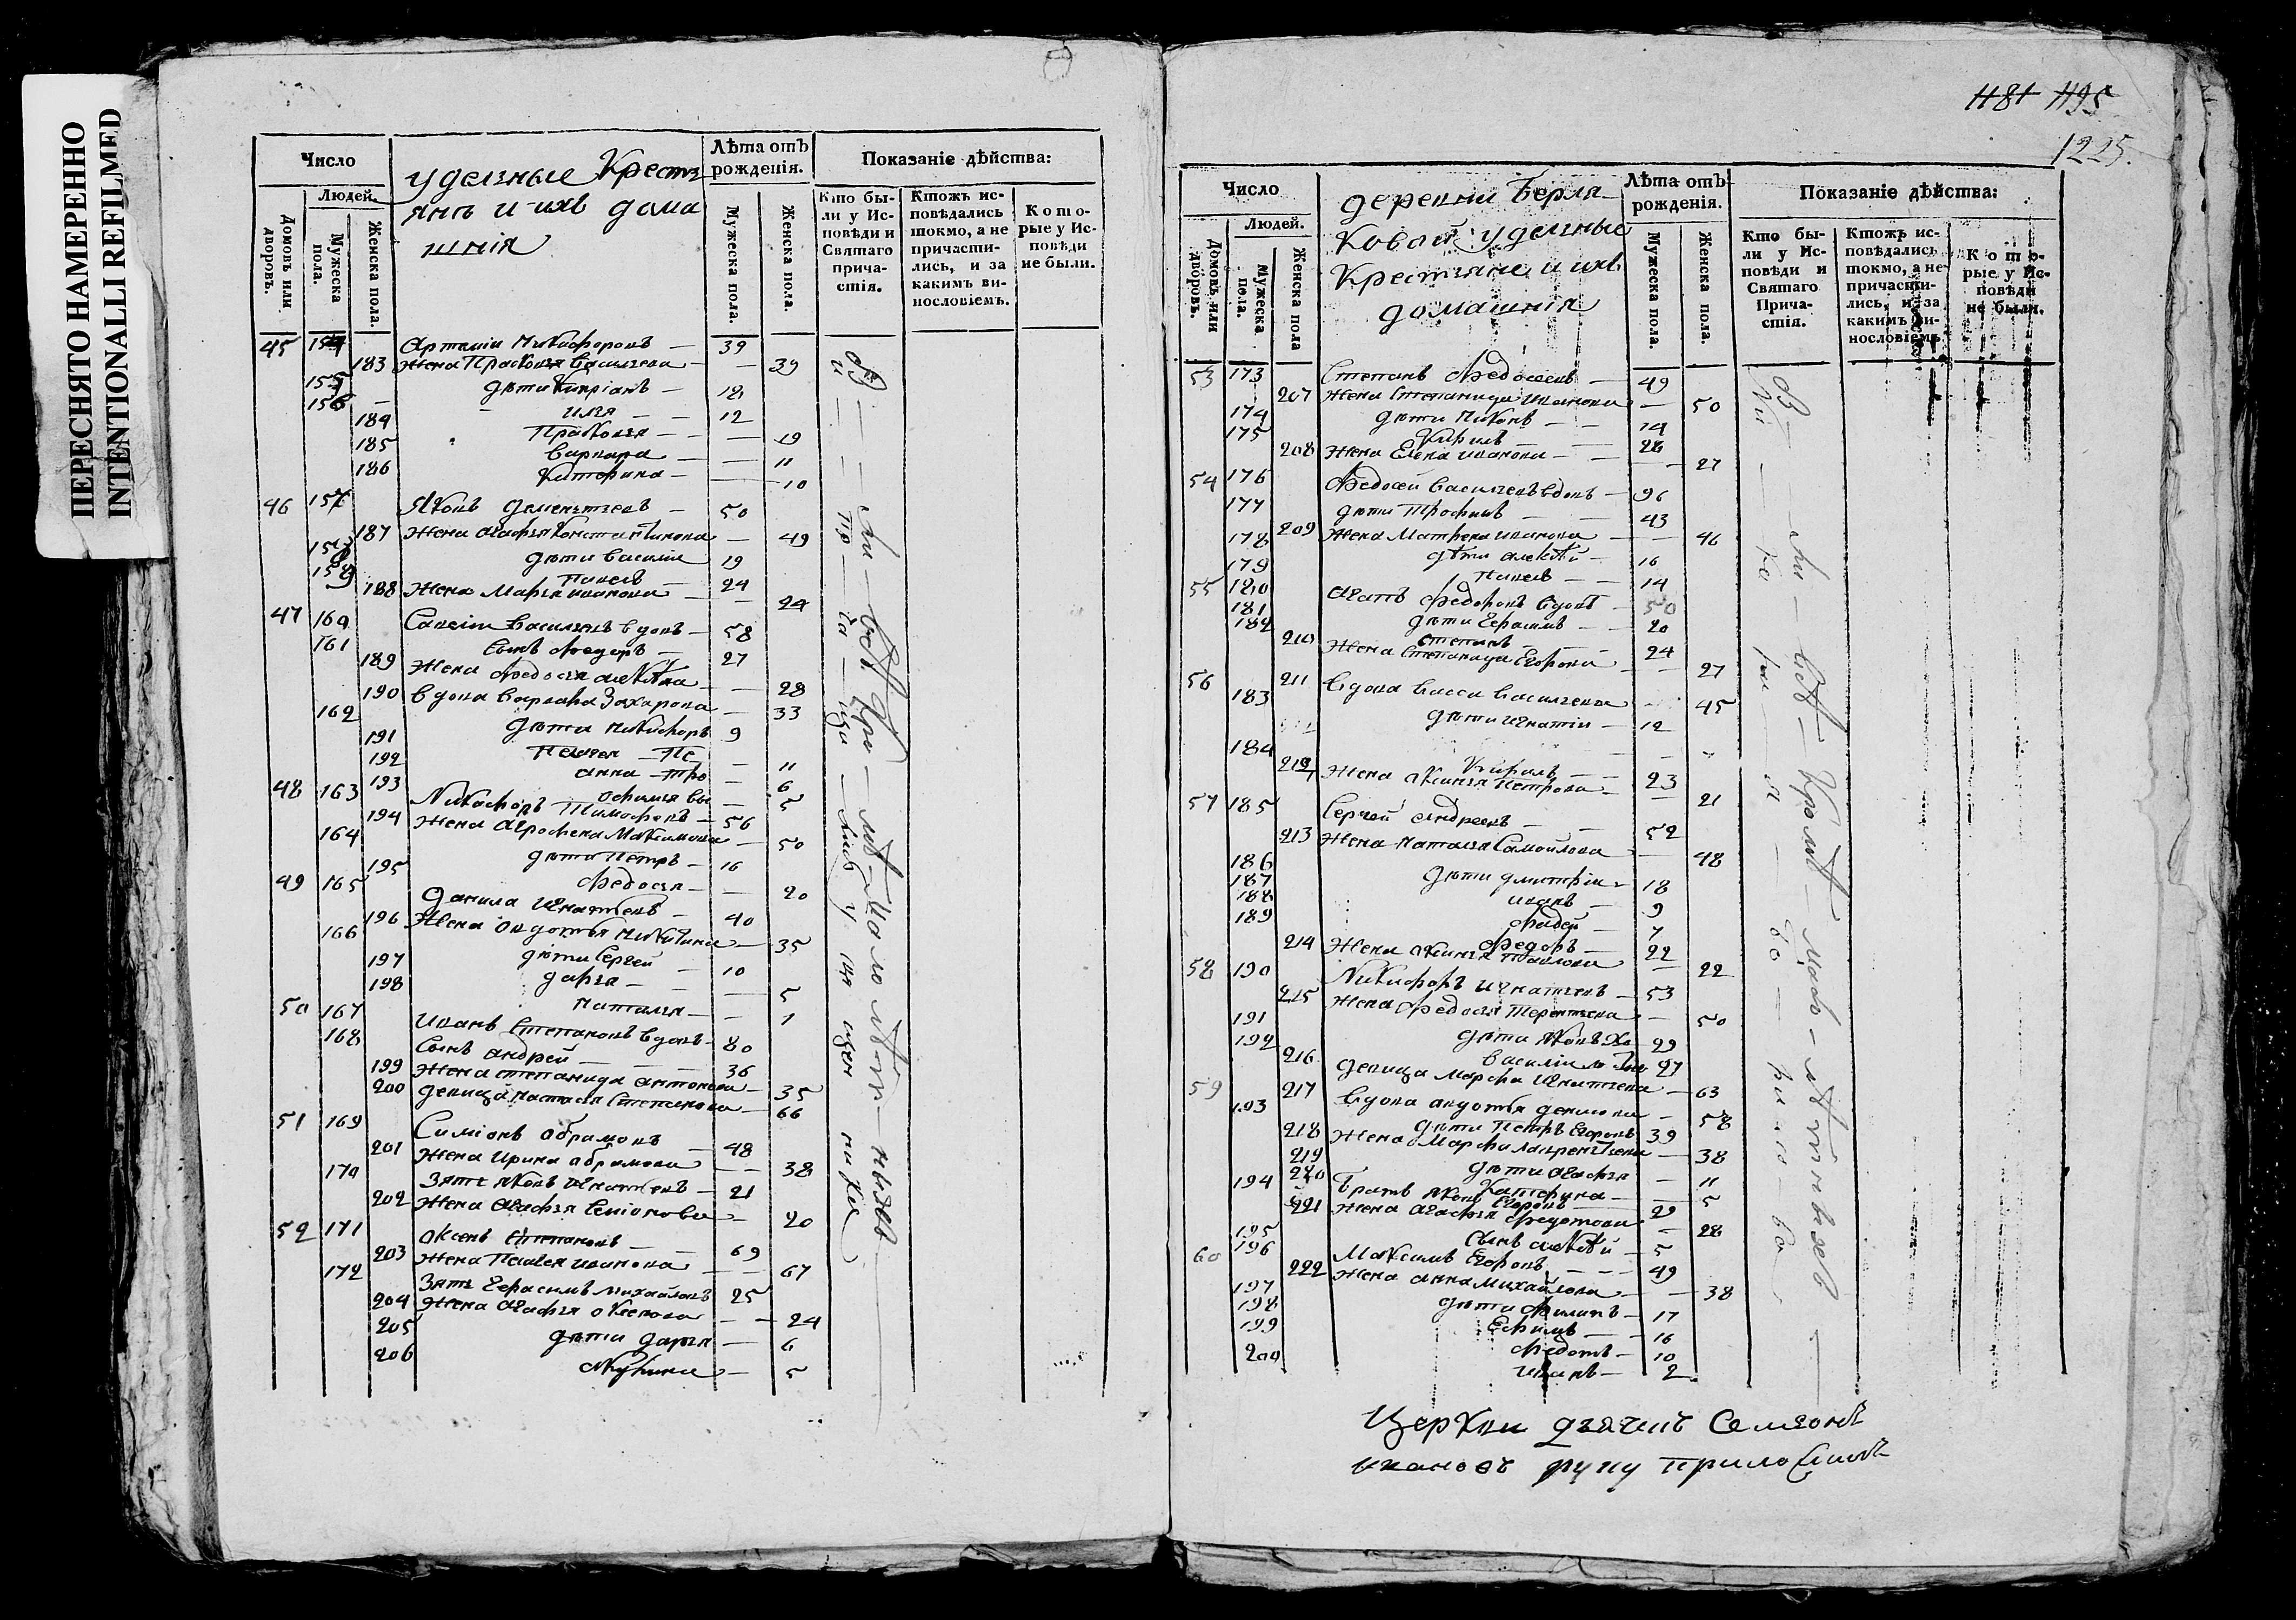 ПЕРЕСНЯТО НАМЕРЕННО
INTENTIONALLI REFILMED
Число
удельные Кресть
Лѣта отъ рожденія.
Показаніе дѣйства:
Людей.
янѣ и ихъ дома
шнія
Домовъ или дворовъ.
Мужеска пола.
Женска пола.
Мужеска пола.
Женска пола.
Кто бы-
ли у Ис-
повѣди и
Святаго
прича-
стія.
Ктожъ ис-
повѣдались
токмо, а не
причасти-
лись, и за
какимъ ви-
нословіемъ.
Кото-
рые у Ис-
повѣди
не были.
45 154 Никифоровъ — 39
183 жена Прасковья Васильева — 39
155 дѣти Кипріанъ — 18
156 илья — 12
184 Прасковья — 19
185 Варвара — 11
186 Катерина — 10
46 157 Яковъ Дементьевъ — 50
187 жена Агафья Константинова — 49
158 дѣти Василій 19
159 Павелъ — 24
188 жена Марья иванова — 24
47 160 Савелій Васильевъ вдовъ — 58
161 сынъ Ѳедоръ — 27
189 жена Ѳедосья — 28
190 вдова Варвара Захарова — 33
162 дѣти Никифоръ 9
191 Пелагея — 11
192 анна — 6
193 Офимья — 5
48 163 Никифоръ Тимофеевъ — 56
194 жена Аграфена Максимова — 50
164 дѣти Петръ — 16
195 Ѳедосья — 20
49 165 Данила Игнатьевъ — 40
196 жена Авдотья Никитина — 35
166 дѣти Сергей — 10
197 Дарья — 5
198 Наталья — 1
50 167 Иванъ Степановъ вдовъ — 80
168 Сынъ Андрей — 36
199 жена степанида антонова — 35
200 девица настасья Степанова — 66
51 169 Симіонъ Абрамовъ — 48
201 жена Ирина абрамова — 38
170 Зять Яковъ Игнатьевъ — 21
202 жена Агафья Симіонова — 20
52 171 Оксенъ Степановъ — 69
203 жена Пелагея иванова — 67
172 Зять Герасимъ михайловъ 25
204 жена Агафья Оксенова — 24
205 дѣти Дарья — 6
206 Акулина — 5
1181 1195
1225.
Число
деревни Берля-
Лѣта отъ рожденія.
Показаніе дѣйства:
Людей.
ковой удельные
Крестьяне и ихъ
домашнія
Домовъ или дворовъ.
Мужеска пола.
Женска пола
Мужеска пола.
Женска пола.
Кто бы-
ли у Ис-
повѣди и
Святаго
Прича-
стія.
Ктожъ ис-
повѣдались
токмо, а не
причасти-
лись, и за
какимъ ви-
нословіемъ.
Кото-
рые у Ис-
повѣди
не были.
53 173 Степанъ Ѳедосеевъ — 49
207 жена Степанида иванова — 50
174 дѣти Никонъ — 14
175 Кирилъ — 28
208 жена Елена иванова — 27
54 176 Ѳедосей Васильевъ вдовъ — 96
177 дѣти Трофимъ — 43
209 жена Матрена иванова — 46
178 дѣти алексѣй — 16
179 Павелъ — 14
55 180 Ѳедоровъ вдовъ — 50
181 дѣти Герасимъ — 20
182 Степанъ — 24
210 жена Степанида Егорова — 27
56 211 вдова Васса Васильева — 45
183 дѣти Игнатій — 12
184 Кирилъ — 23
212 жена Аксинья Петрова — 21
57 185 Сергей Андреевъ — 52
213 жена Наталья Самойлова — 48
186 дѣти дмитрій — 18
187 иванъ — 9
188 Ѳадей — 7
189 Ѳедоръ — 22
214 жена Аксинья Павлова — 22
58 190 Никифоръ игнатьевъ — 53
215 жена Ѳедосья Терентьева — 50
191 дѣти Яковъ 29
192 Василій 27
216 девица Марфа Игнатьева — 63
59 217 вдова авдотья денисова — 58
193 дѣти Петръ Егоровъ 39
218 жена Марфа Лаврентьева — 38
219 дѣти Агафья — 11
220 Катерина — 5
194 Братъ Яковъ Егоровъ — 29
221 жена Агафья Ѳедотова — 28
195 сынъ алексѣй — 5
60 196 Максимъ Егоровъ — 49
222 жена анна Михайлова — 38
197 дѣти Филипъ — 17
198 Ефимъ — 16
199 Ѳедотъ — 10
200 иванъ — 2
Церкви дьячикъ Семионъ
ивановъ руку приложилъ